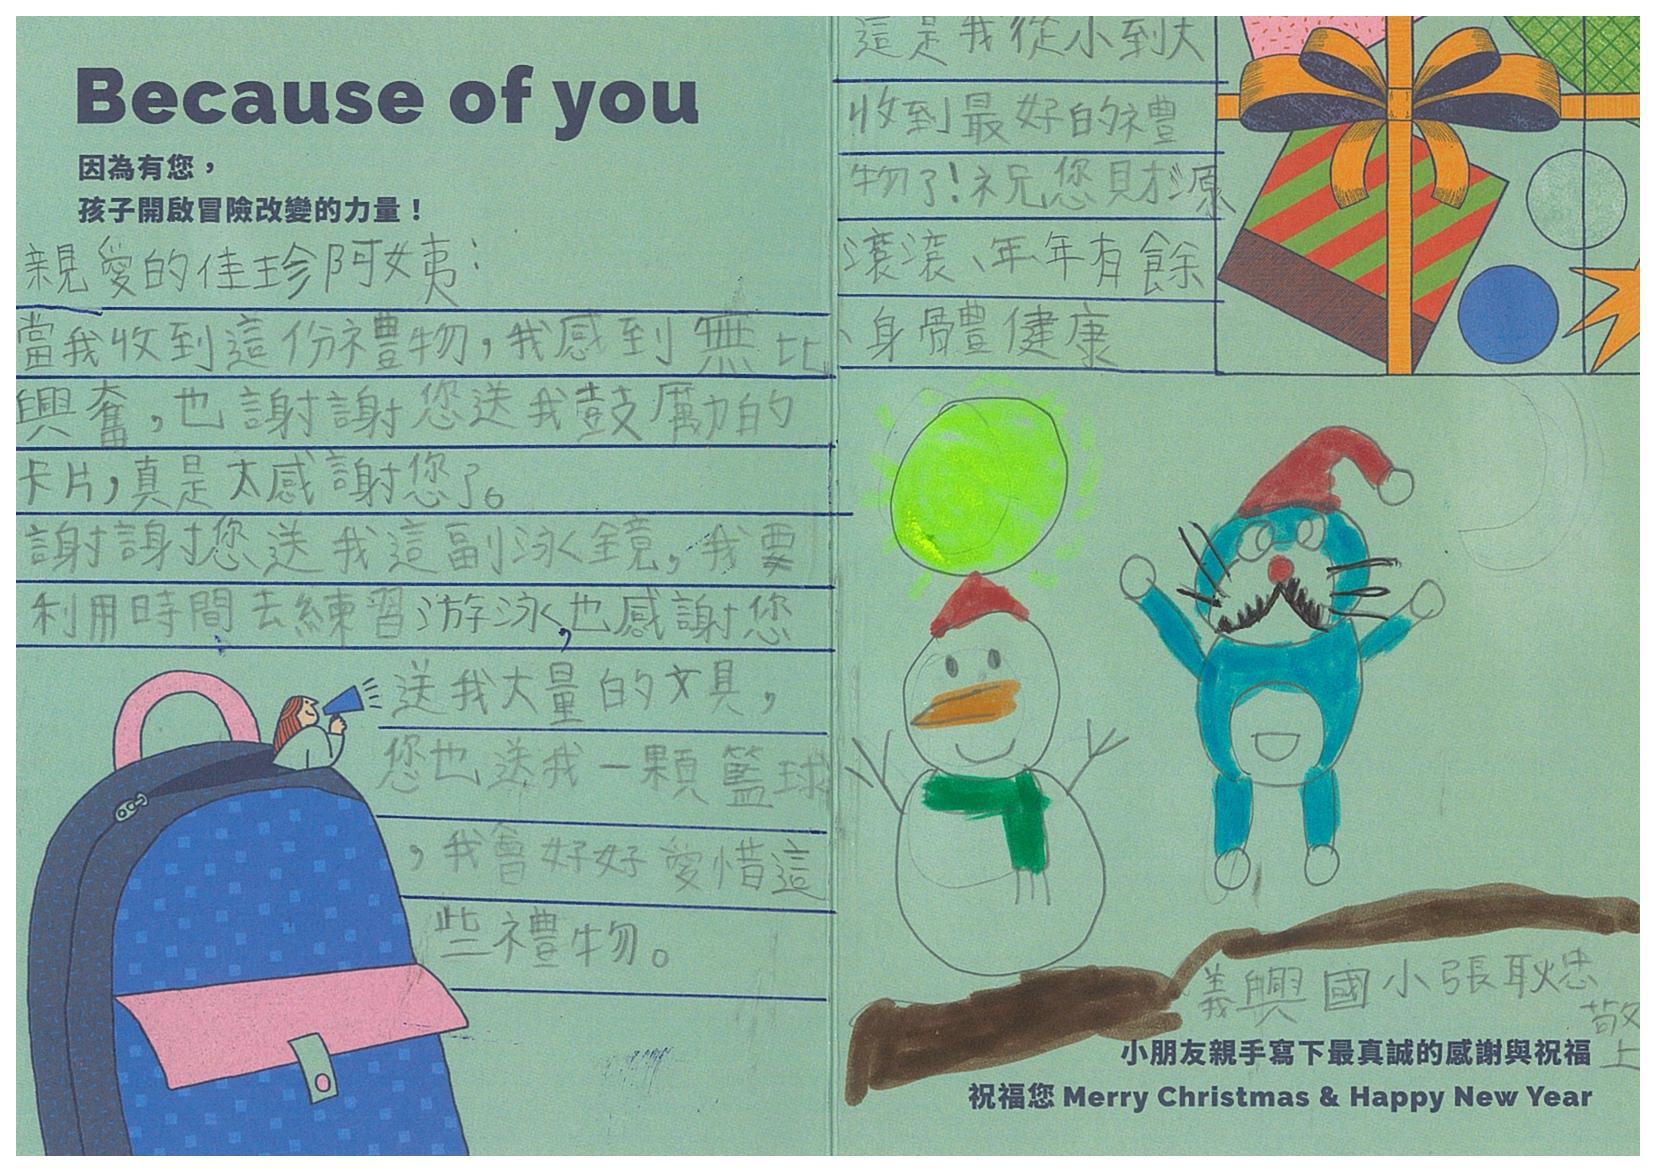 Because of you
因為有您，
孩子開啟冒險改變的力量！
親愛的佳珍阿姨：
當我收到這份禮物，我感到無比
興奮，也謝謝您送我鼓厲的
卡片，真是太感謝您了。
謝謝您送我這副泳鏡，我要
利用時間去練習游泳，也感謝您
送我大量的文具，
您也送我一顆籃球
，我會好好愛惜這
些禮物。
這是我從小到大
收到最好的禮
物了！祝您財源
滾滾、年年有餘
、身體健康
義興國小張耿忠
敬上
小朋友親手寫下最真誠的感謝與祝福
祝福您 Merry Christmas & Happy New Year